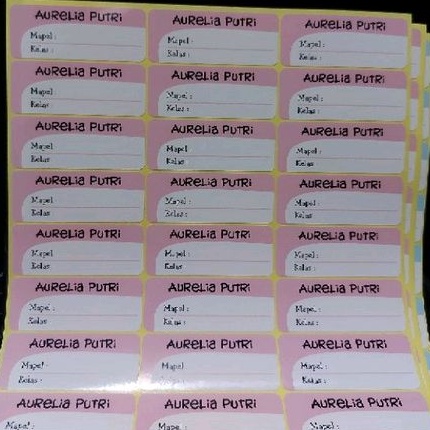 AURELIA PUTRI AURELIA PUTRI AURELIA PUTRI
Mapel : Mapel : Mapel :
Kelas : Kelas : Kelas :
AURELIA PUTRI AURELIA PUTRI AURELIA PUTRI
Mapel : Mapel : Mapel :
Kelas Kelas : Kelas :
AURELIA PUTRI AURELIA PUTRI AURELIA PUTRI
Mapel Mapel Mapel :
Kelas Kelas Kelas :
AURELIA PUTRI AURELIA PUTRI AURELIA PUTRI
Mapel Mapel : Mapel :
Kelas Kelas : Kelas
AURELIA PUTRI AURELIA PUTRI AURELIA PUTRI
Mapel Mapel : Mapel :
Kelas Kelas Kelas :
AURELIA PUTRI AURELIA PUTRI AURELIA PUTRI
Mapel : Mapel : Mapel :
Kelas Kelas : Kelas :
AURELIA PUTRI AURELIA PUTRI AURELIA PUTRI
Mapel Mapel Mapel :
Kelas : Kelas : Kelas :
AURELIA PUTRI AURELIA PUTRI AURELIA PUTRI
Mapel : Mapel : Mapel :